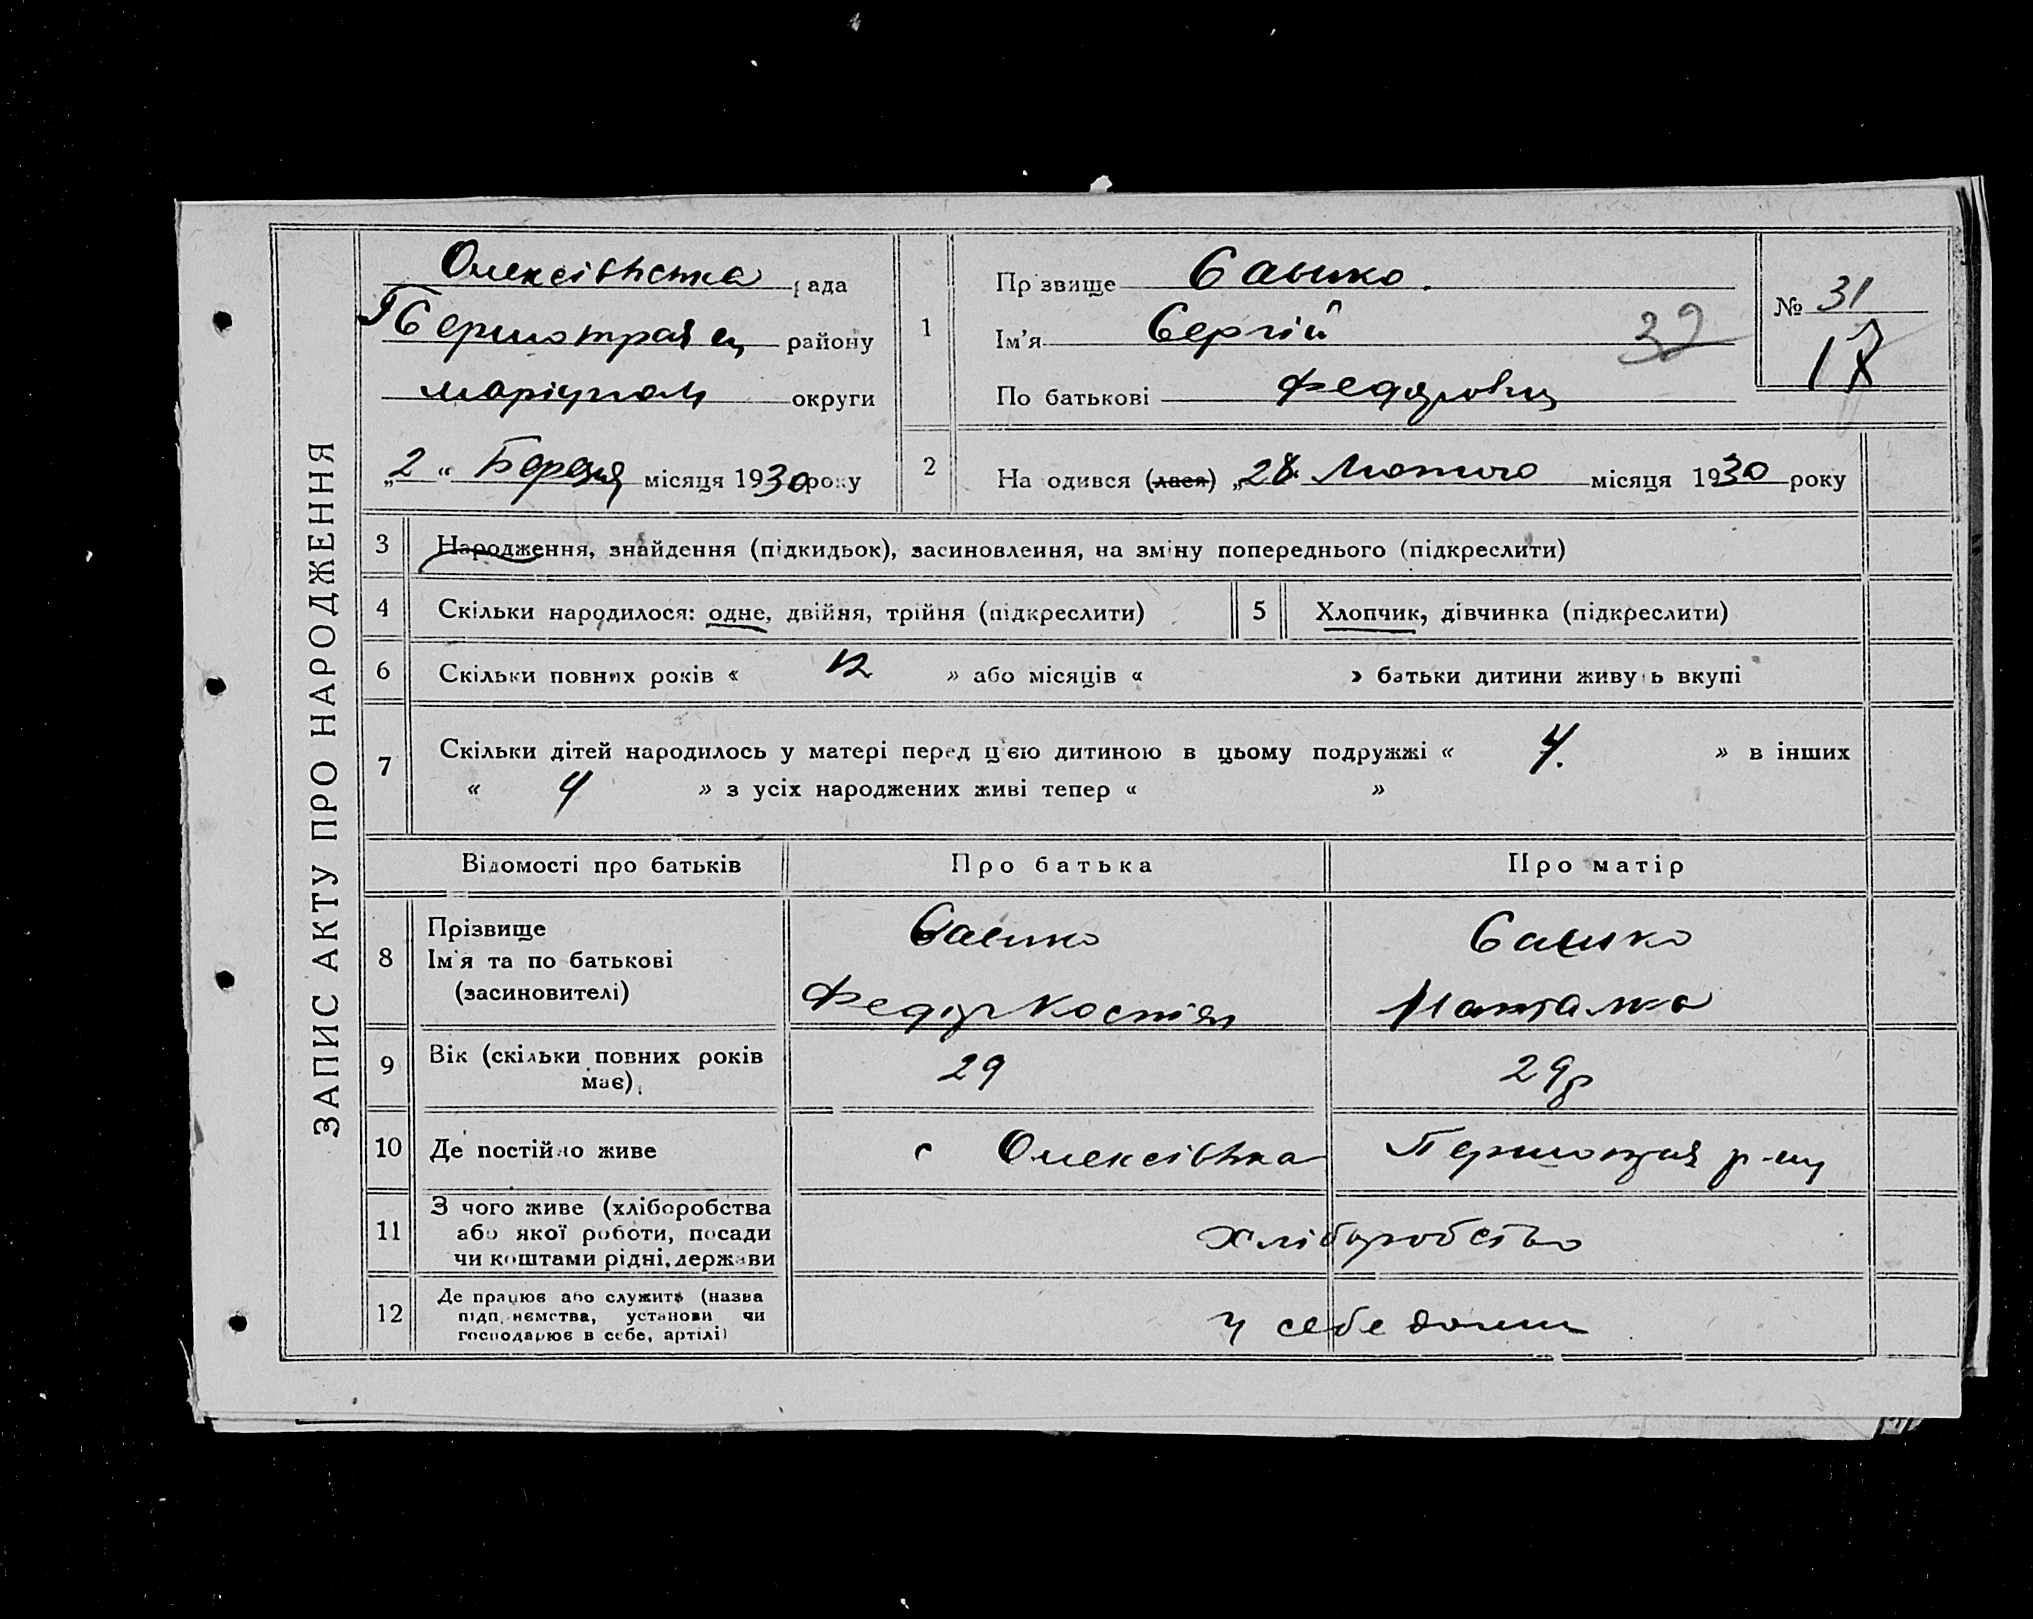 ЗАПИС АКТУ ПРО НАРОДЖЕННЯ
Олексівська рада
району
Маріупол округи
„2“ Березня місяця 1930 року
1
Прізвище Сашко.
Ім'я Сергій 32
По батькові Федорович
№ 31
17
2
Народився (лася) „28. Лютого місяця 1930 року
3 Народження, знайдення (підкидьок), засиновлення, на зміну попереднього (підкреслити)
4 Скільки народилося: одне, двійня, трійня (підкреслити) 5 Хлопчик, дівчинка (підкреслити)
6 Скільки повних років « 12 » або місяців « » батьки дитини живуть вкупі
7 Скільки дітей народилось у матері перед цією дитиною в цьому подружжі « 4. » в інших
« 4 » з усіх народжених живі тепер « »
Відомості про батьків Про батька Про матір
8 Прізвище Сашко Сашко
Ім'я та по батькові
(засиновителі) Федір Костян Наталка
9 Вік (скільки повних років має) 29 29р
10 Де постійно живе с Олексівка р-ну
11 З чого живе (хліборобства
або якої роботи, посади
чи коштами рідні, держави хлiборобство
12 Де працює або служить (назва
підприємства, установи чи
господарює в себе, артілі) у себе дома